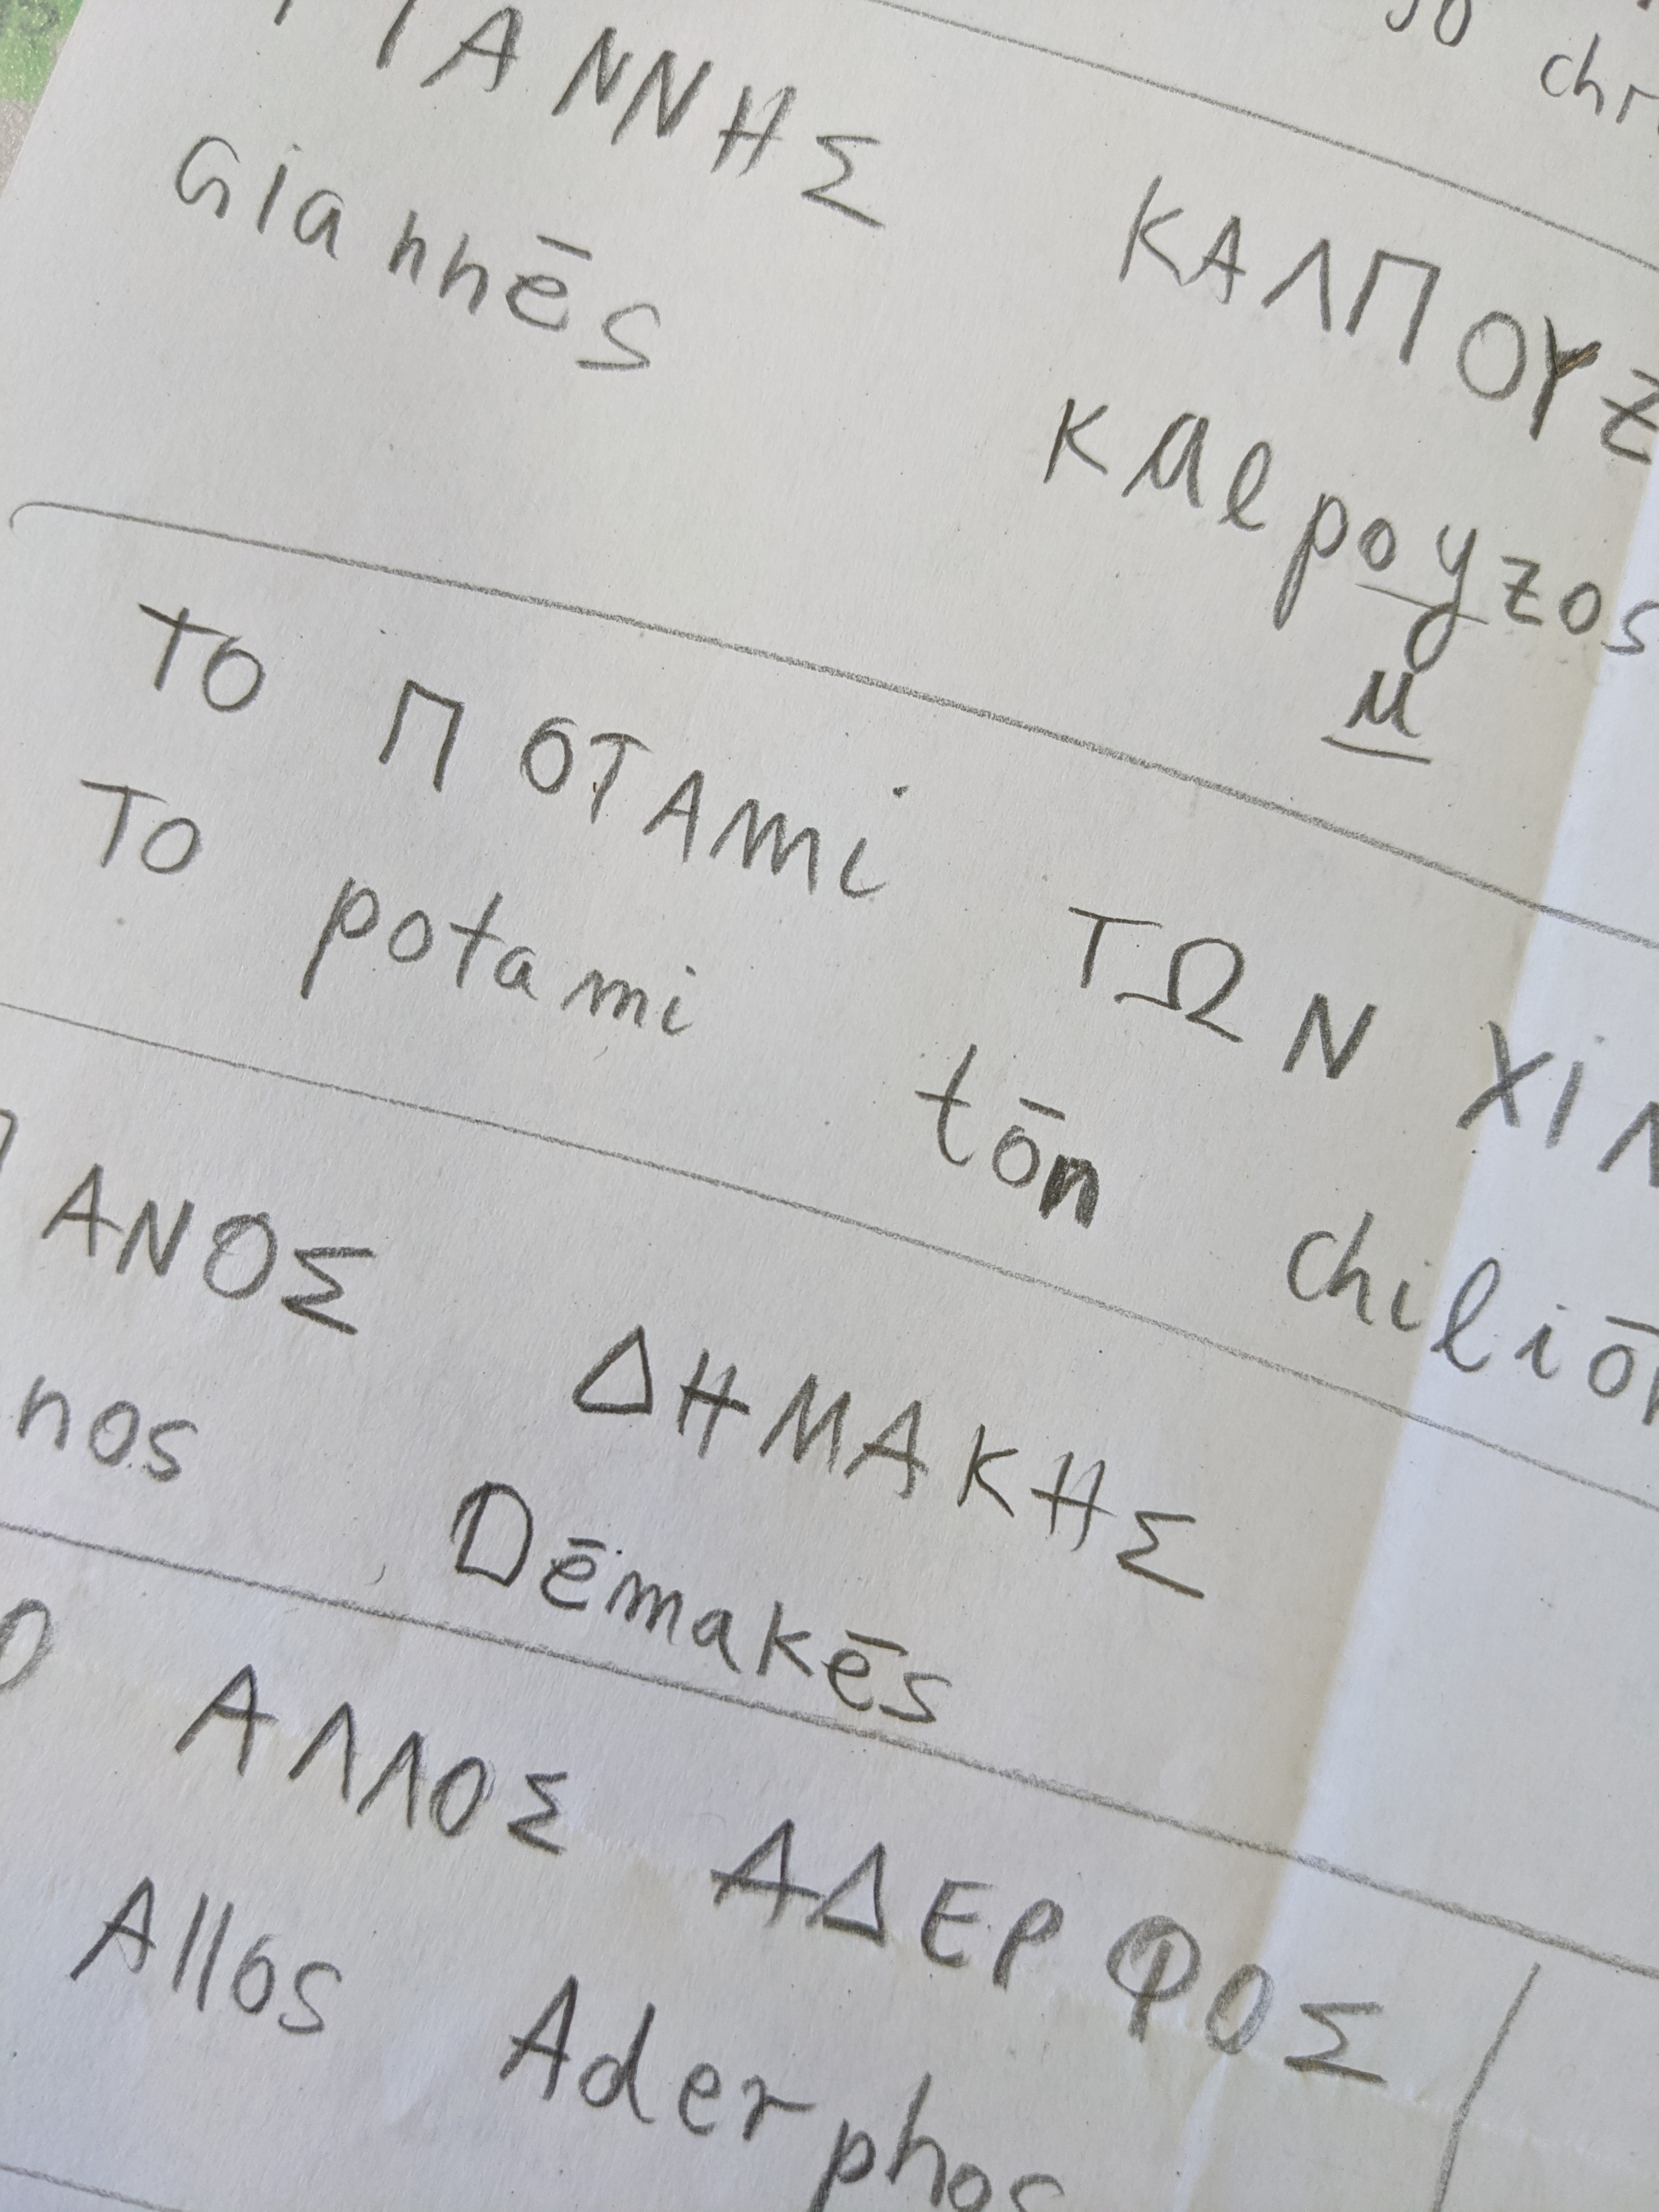 ΓΙΑΝΝΗΣ ΚΑΛΠΟΥΖ
Giannēs Kalpoyzos
u
ΤΟ ΠΟΤΑΜi ΤΩΝ ΧiΛ
To potami tōn chiliōn
ΑΝΟΣ ΔΗΜΑΚΗΣ
nos Dēmakēs
Ο ΑΛΛΟΣ ΑΔΕΡΦΟΣ
Allos Aderphos